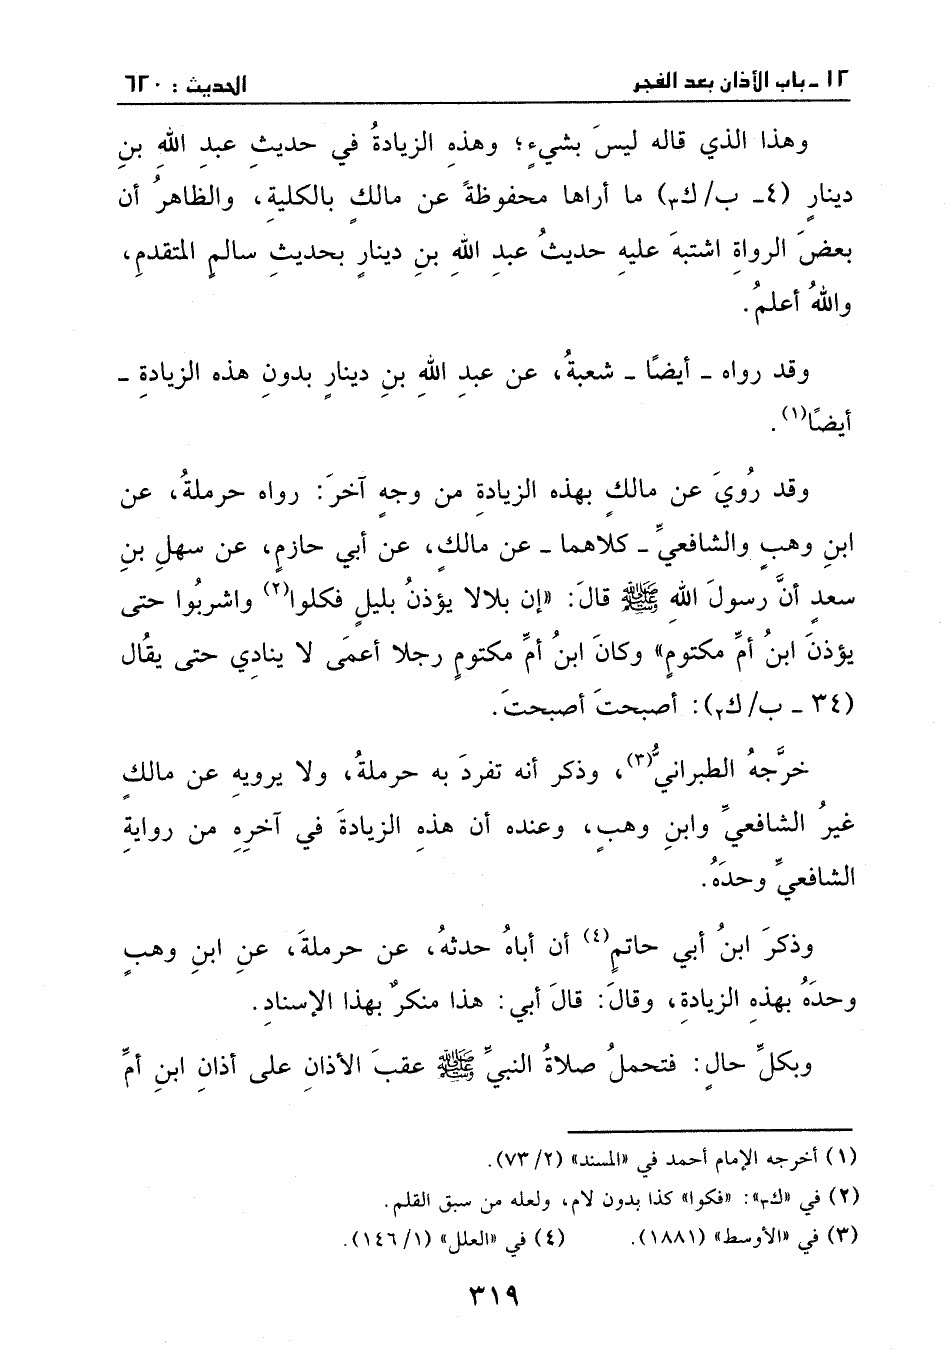 ١٢ ـ باب الأذان بعد الفجر
الحديث : ٦٢٠
وهذا الذي قاله ليسَ بشيءٍ؛ وهذهِ الزيادةُ في حديثِ عبدِ اللهِ بنِ
دينارٍ (٤ـ ب/ك٣) ما أراها محفوظةً عن مالكٍ بالكليةِ، والظاهرُ أن
بعضَ الرواةِ اشتبهَ عليهِ حديثُ عبدِ اللهِ بنِ دينارٍ بحديثِ سالمٍ المتقدمِ،
واللهُ أعلمُ.
وقد رواه ـ أيضًا ـ شعبةُ، عن عبدِ اللهِ بنِ دينارٍ بدونِ هذه الزيادةِ ـ
أيضًا(١).
وقد رُويَ عن مالكٍ بهذه الزيادةِ من وجهٍ آخرَ: رواه حرملةُ، عن
ابنِ وهبٍ والشافعيِّ ـ كلاهما ـ عن مالكٍ، عن أبي حازمٍ، عن سهلِ بنِ
سعدٍ أنَّ رسولَ اللهِ ﷺ قالَ: «إن بلالا يؤذنُ بليلٍ فكلوا(٢) واشربُوا حتى
يؤذنَ ابنُ أمِّ مكتومٍ» وكانَ ابنُ أمِّ مكتومٍ رجلا أعمَى لا ينادِي حتى يقُال
(٣٤ ـ ب/ك٢): أصبحتَ أصبحتَ.
خرَّجهُ الطبرانيُّ(٣)، وذكر أنه تفردَ به حرملةُ، ولا يرويهِ عن مالكٍ
غيرُ الشافعيِّ وابنِ وهبٍ، وعنده أن هذهِ الزيادةَ في آخرِهِ من روايةِ
الشافعيِّ وحدَهُ.
وذكرَ ابنُ أبي حاتمٍ(٤) أن أباهُ حدثهُ، عن حرملةَ، عنِ ابنِ وهبٍ
وحدَهُ بهذهِ الزيادةِ، وقالَ: قالَ أبي: هذا منكرٌ بهذا الإسنادِ.
وبكلِّ حالٍ: فتحملُ صلاةُ النبيِّ ﷺ عقبَ الأذانِ على أذانِ ابنِ أمِّ
(١) أخرجه الإمام أحمد في «المسند» (٧٣/٢).
(٢) في «ك٣»: «فكوا» كذا بدون لام، ولعله من سبق القلم.
(٣) في «الأوسط» (١٨٨١). (٤) في «العلل» (١٤٦/١).
٣١٩